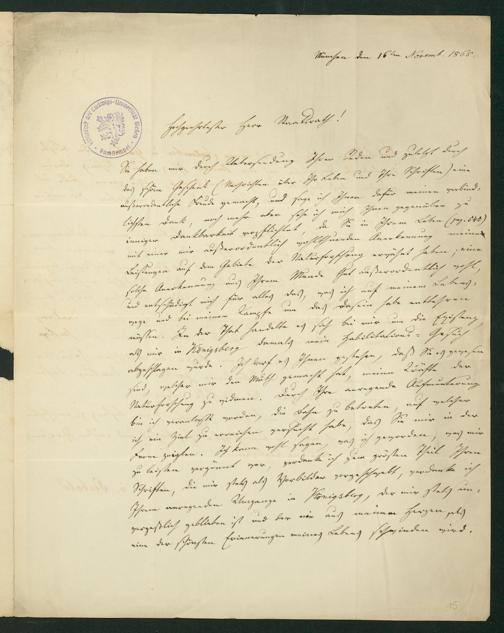 München den 16ten Novemb. 1865.
Hochgeehrtester Herr Staatsrath!
Sie haben mir durch Übersendung Ihrer Reden und zuletzt durch
das schöne Geschenk (Nachrichten über Ihr Leben und Ihre Schriften) eine
außerordentliche Freude gemacht, und sage ich Ihnen dafür meinen verbind-
lichsten Dank, noch mehr aber fühle ich mich Ihnen gegenüber zu
inniger Dankbarkeit verpflichtet, da Sie in Ihrem Leben (pag.
mit einer mir außerordentlich wohlthuenden Anerkennung meiner
Leistungen auf dem Gebiete der Naturforschung erwähnt haben, eine
solche Anerkennung aus Ihrem Munde thut außerordentlich wohl,
und entschädigt mich für alles das, was ich auf meinem Lebens-
wege und bei meinem Kampfe um das Dasein habe entbehren
müssen. In der That handelte es sich bei mir um die Existenz,
als mir in Königsberg damals mein Habilitations-Gesuch
abgeschlagen wurde. Ich darf es Ihnen gestehen, daß Sie es gewesen
sind, welcher mir den Muth gemacht hat, meine Kräfte der
Naturforschung zu widmen. Durch Ihre anregende Aufmunterung
bin ich veranlaßt worden, die Bahn zu betreten, auf welcher
ich ein Ziel zu erreichen gesucht habe, das Sie mir in der
Ferne zeigten. Ich kann wohl sagen, was ich geworden, was mir
zu leisten vergönnt war, verdanke ich zum größten Theil Ihren
Schriften, die mir stets als Vorbilder vorgeschwebt, verdanke ich
Ihrem anregenden Umgange in Königsberg, der mir stets un-
vergeßlich geblieben ist und der nie aus meinem Herzen als
eine der schönsten Erinnerungen meines Lebens schwinden wird.